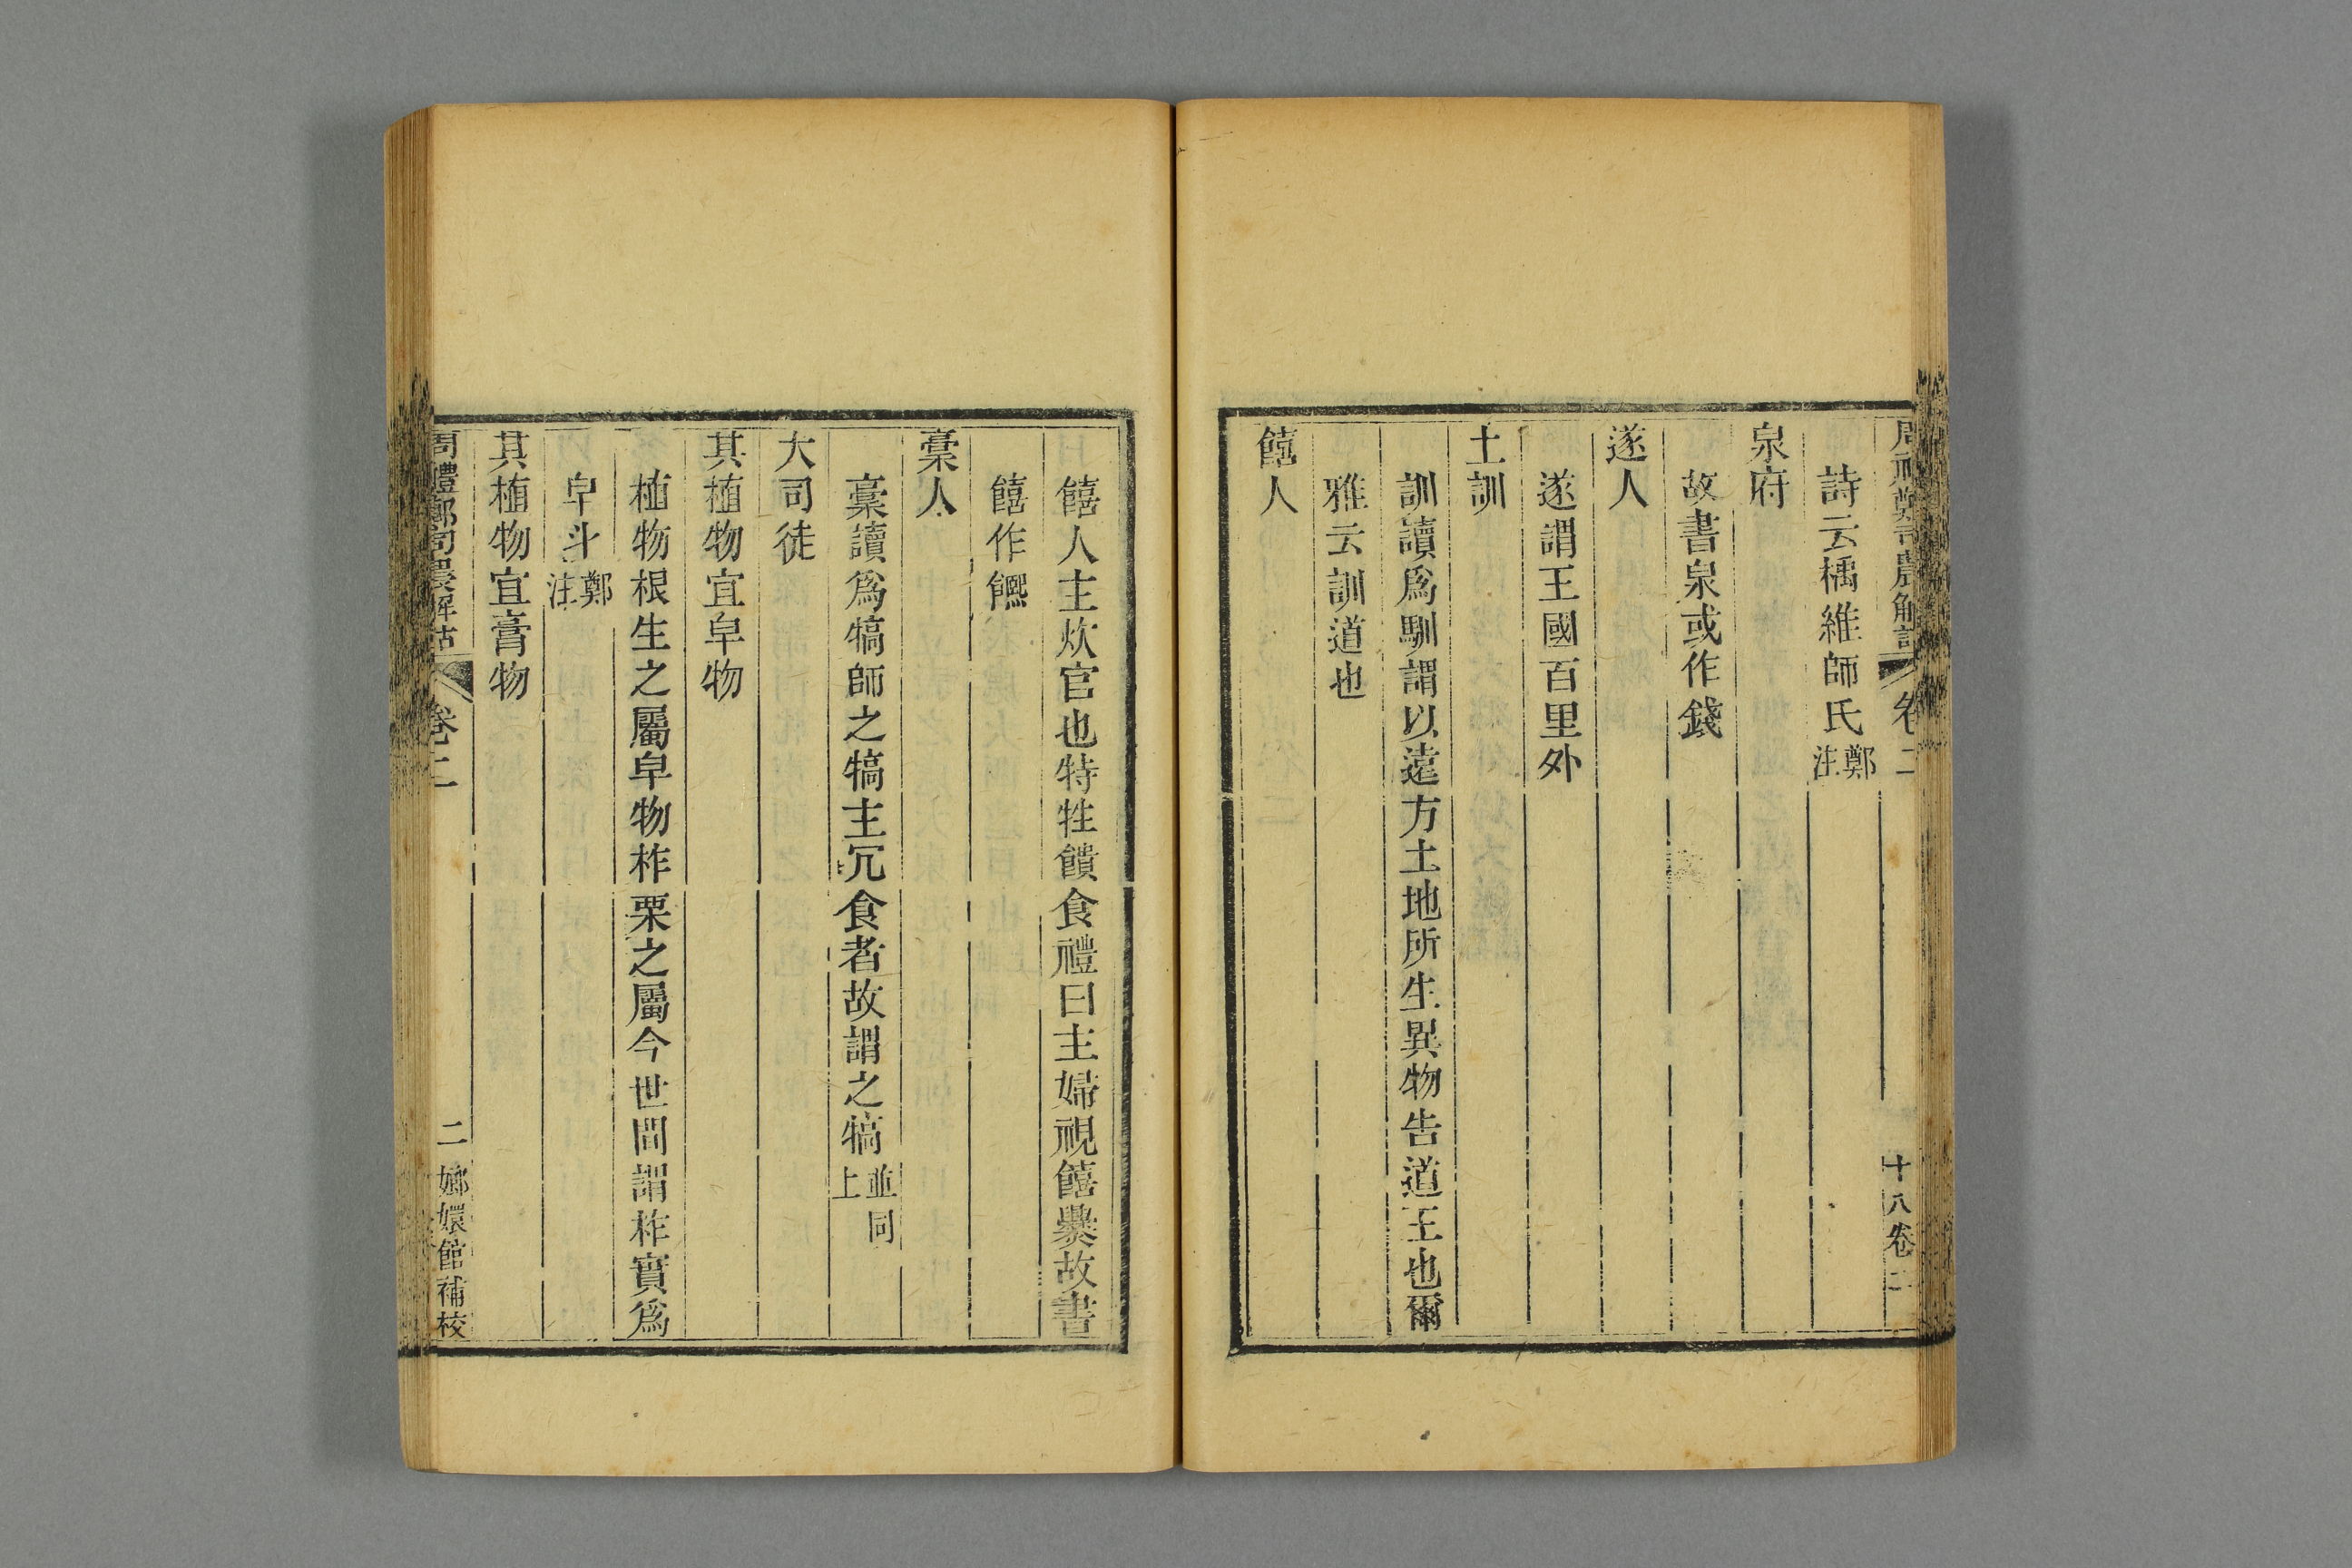 周禮鄭司農解詁 卷二 十八卷二
詩云楀維師氏鄭注
泉府
故書泉或作錢
遂人
遂謂王國百里外
土訓
訓讀爲馴謂以遠方土地所生異物告道王也爾
雅云訓道也
饎人
饎人主炊官也特牲饋食禮曰主婦視饎爨故書
饎作𩟄
槀人
槀讀爲犒師之犒主冗食者故謂之犒並同上
大司徒
其植物宜皁物
植物根生之屬皁物柞栗之屬今世間謂柞實爲
皁斗鄭注
其植物宜膏物
周禮鄭司農解詁 卷二 二 嫏嬛館補校